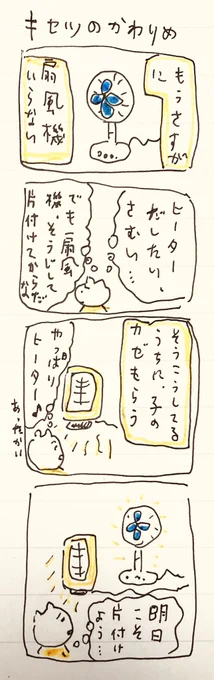 キセツのかわりめ
もうさすがに
扇風機
いらない
ヒーター
だしたい、
さむい…
でも扇風
機、そうじして
片付けてからだな
そうこうしてる
うちに、子の
カゼもらう
やっぱり
ヒーター♪
あったかい
明日
こそ
片付け
よう…